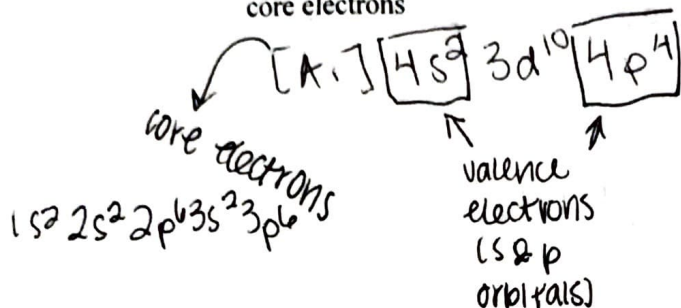 core electrons
[Ar] 4s² 3d¹⁰ 4p⁴
core electrons
1s² 2s² 2p⁶ 3s² 3p⁶
valence
electrons
(s & p
orbitals)